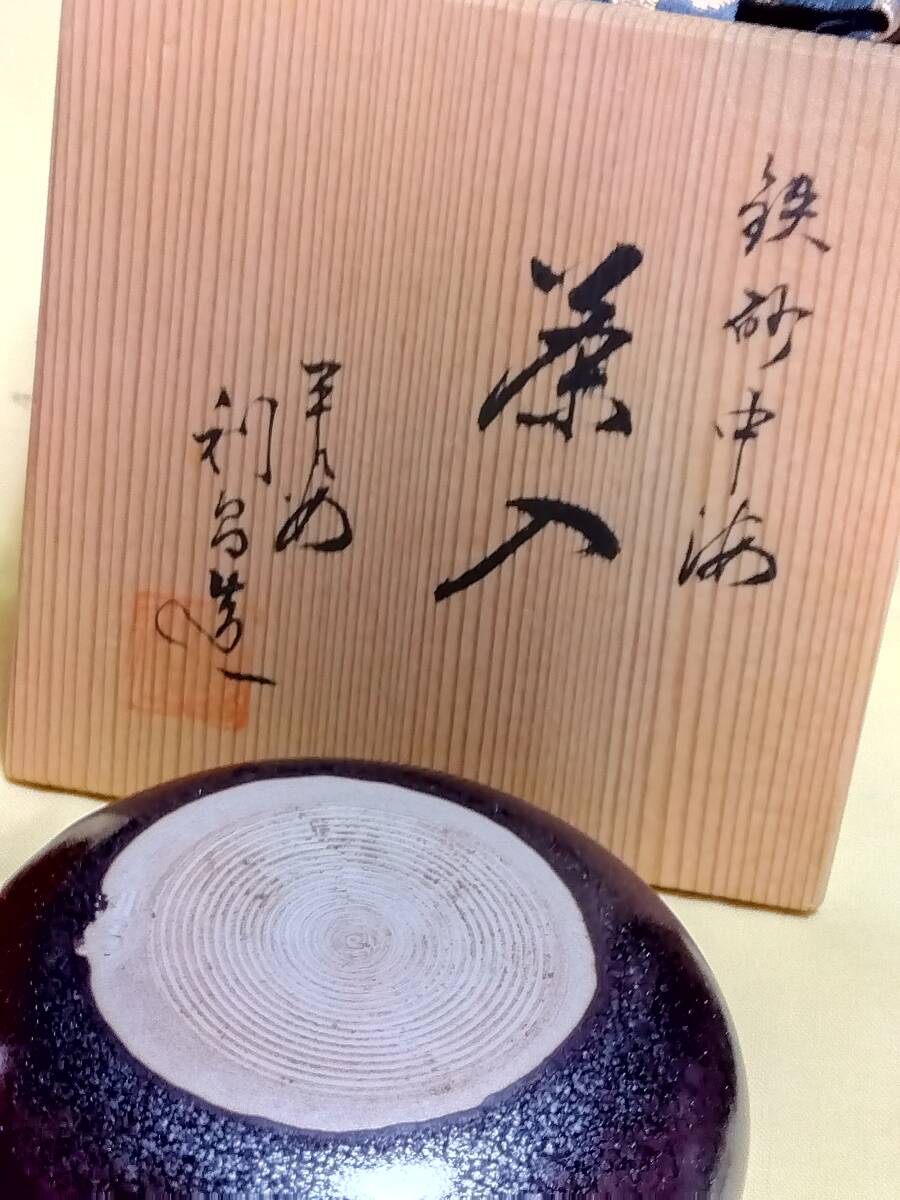 鉄砂中海
茶入
利昌造